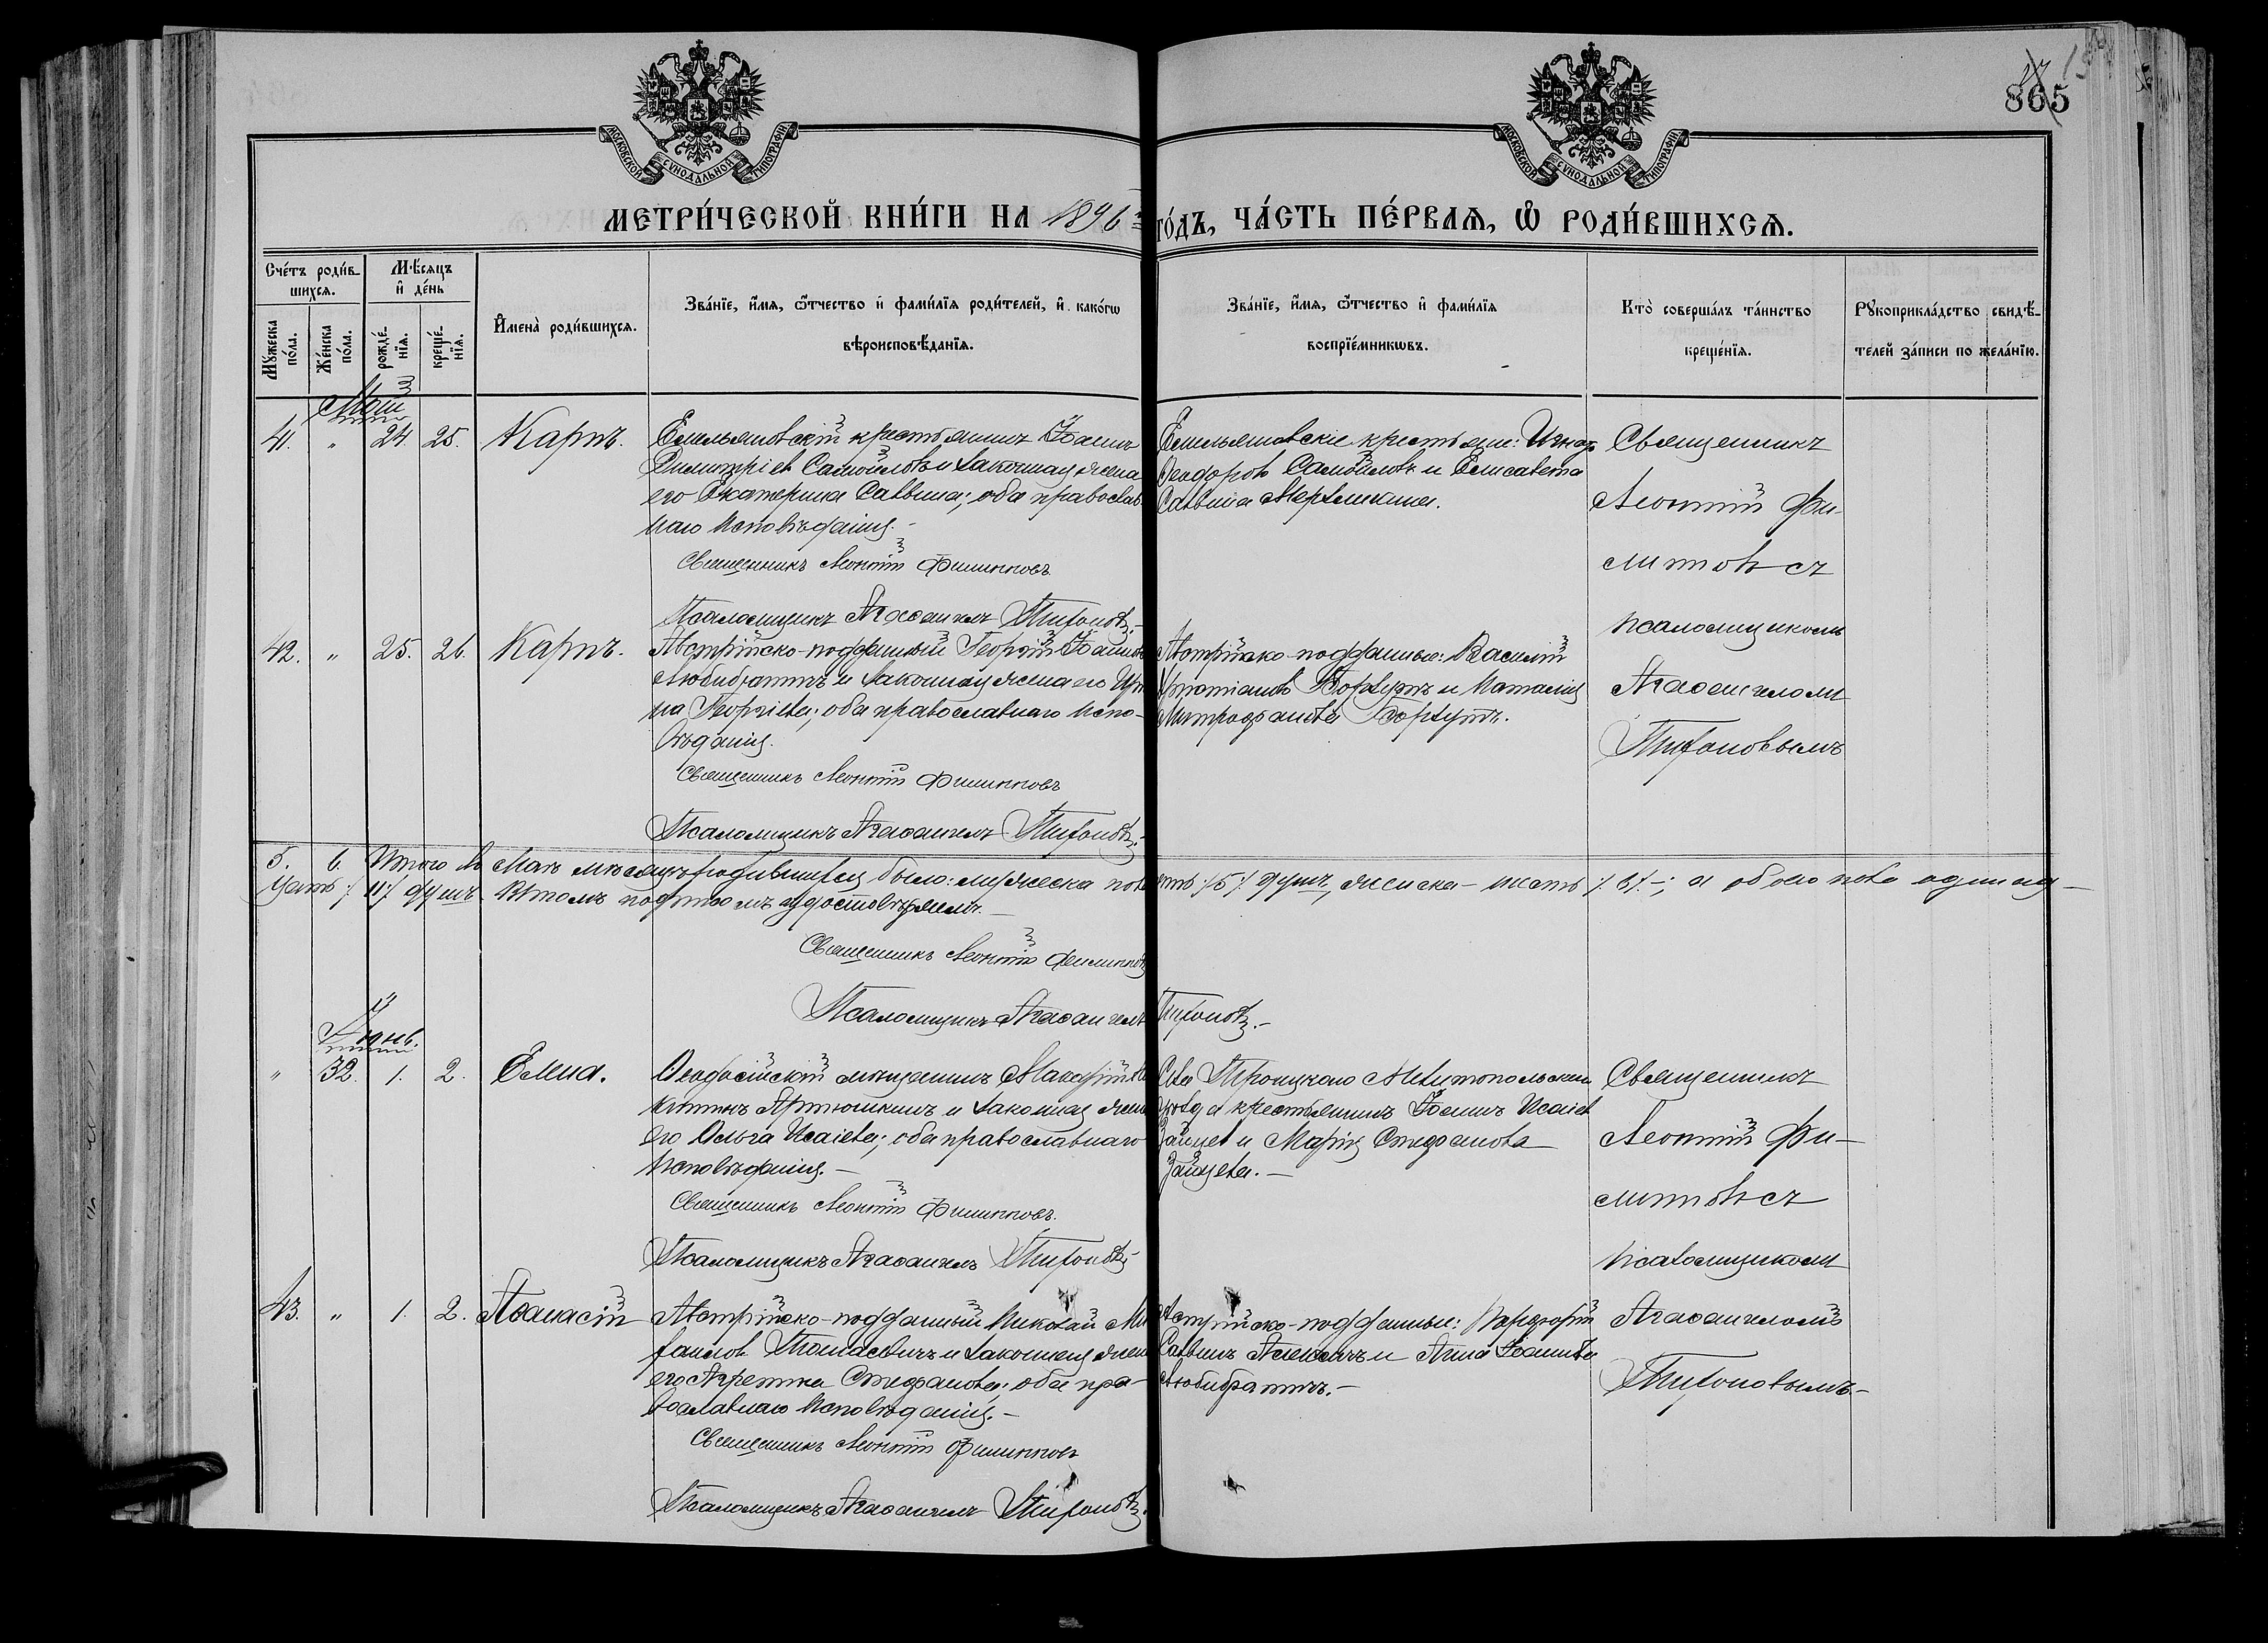 865
МОСКОВСКОЙ СѴНОДАЛЬНОЙ ТИПОГРАФІИ
МОСКОВСКОЙ СѴНОДАЛЬНОЙ ТИПОГРАФІИ
МЕТРИ́ЧЕСКОЙ КНИ́ГИ НА 1896й ГО́ДЪ, ЧА́СТЬ ПЕ́РВАѦ, Ѡ РОДИ́ВШИХСѦ.
Сче́тъ роди́в-
шихсѧ.
Мꙋжеска
по́ла.
Же́нска
по́ла.
Мѣ́сѧцъ
и҆ де́нь
рожде́-
нїѧ.
креще́-
нїѧ.
И҆мена̀ роди́вшихсѧ.
Зва́нїе, и҆́мѧ, ѻ҆́тчество и҆ фами́лїѧ роди́телей, и҆ како́гѡ
вѣроисповѣ́данїѧ.
Зва́нїе, и҆́мѧ, ѻ҆́тчество и҆ фами́лїѧ
воспрїе́мникѡвъ.
Кто̀ соверша́лъ та́инство
креще́нїѧ.
Рꙋкоприкла́дство свидѣ́-
телей за́писи по жела́нїю.
Май
41. " 24. 25. Карпъ.
Емельяновскій крестьянинъ Іоаннъ
Димитріев Самойловъ и законная жена
его Екатерина Саввина; оба православ
наго исповѣданія.-
Священникъ Леонтій Филипповъ
Псаломщикъ Агаѳангелъ Тихоновъ.-
Емельяновскіе крестьяне: Игнат
Ѳеодоров Самойловъ и Елисавета
Саввина
Священникъ
Леонтій Фи-
липповъ съ
псаломщикомъ
Агаѳангеломъ
Тихоновымъ
42. " 25. 26. Карпъ.
Австрійско-подданный Георгій Іоаннов
Любибратичъ и законная жена его Ири
на Георгіева; оба православнаго испо-
вѣданія.
Священникъ Леонтій Филипповъ
Псаломщикъ Агаѳангелъ Тихоновъ.-
Австрійско-подданные: Василій
и Наталія
Митрофанова
5. 6. Итого въ Маѣ мѣсяцѣ родившихся было: мужеска пола пять /5/ душъ, женска - шесть /6/.-; а обоего пола одинад-
цать /11/ душъ. Въ томъ подписомъ удостовѣряемъ.-
Священникъ Леонтій Филипповъ
Псаломщикъ Агаѳангелъ Тихоновъ.-
Іюнь.
" 32. 1. 2. Елена.
Ѳеодосійскій мѣщанинъ Макарій
Артюшкинъ и законная жена
его Ольга Исаіева; оба православнаго
исповѣданія.-
Священникъ Леонтій Филипповъ.
Псаломщикъ Агаѳангелъ Тихоновъ.-
Села Троицкаго Мелитопольскаго
уѣзда крестьянинъ Іоаннъ Исаіев
Зайцев и Марія Стефанова
Зайцева.-
Священникъ
Леонтій Фи-
липповъ съ
псаломщикомъ
Агаѳангеломъ
Тихоновымъ.-
43. " 1. 2. Аѳанасій
Австрійско-подданный Николай Ми
хаилов Томасевичъ и законная жена
его Стефанова; оба пра-
вославнаго исповѣданія.-
Священникъ Леонтій Филипповъ
Псаломщикъ Агаѳангелъ Тихоновъ.
Австрійско-подданные: Порфирій
Саввинъ и Анна Іоаннова
Любибратичъ.-